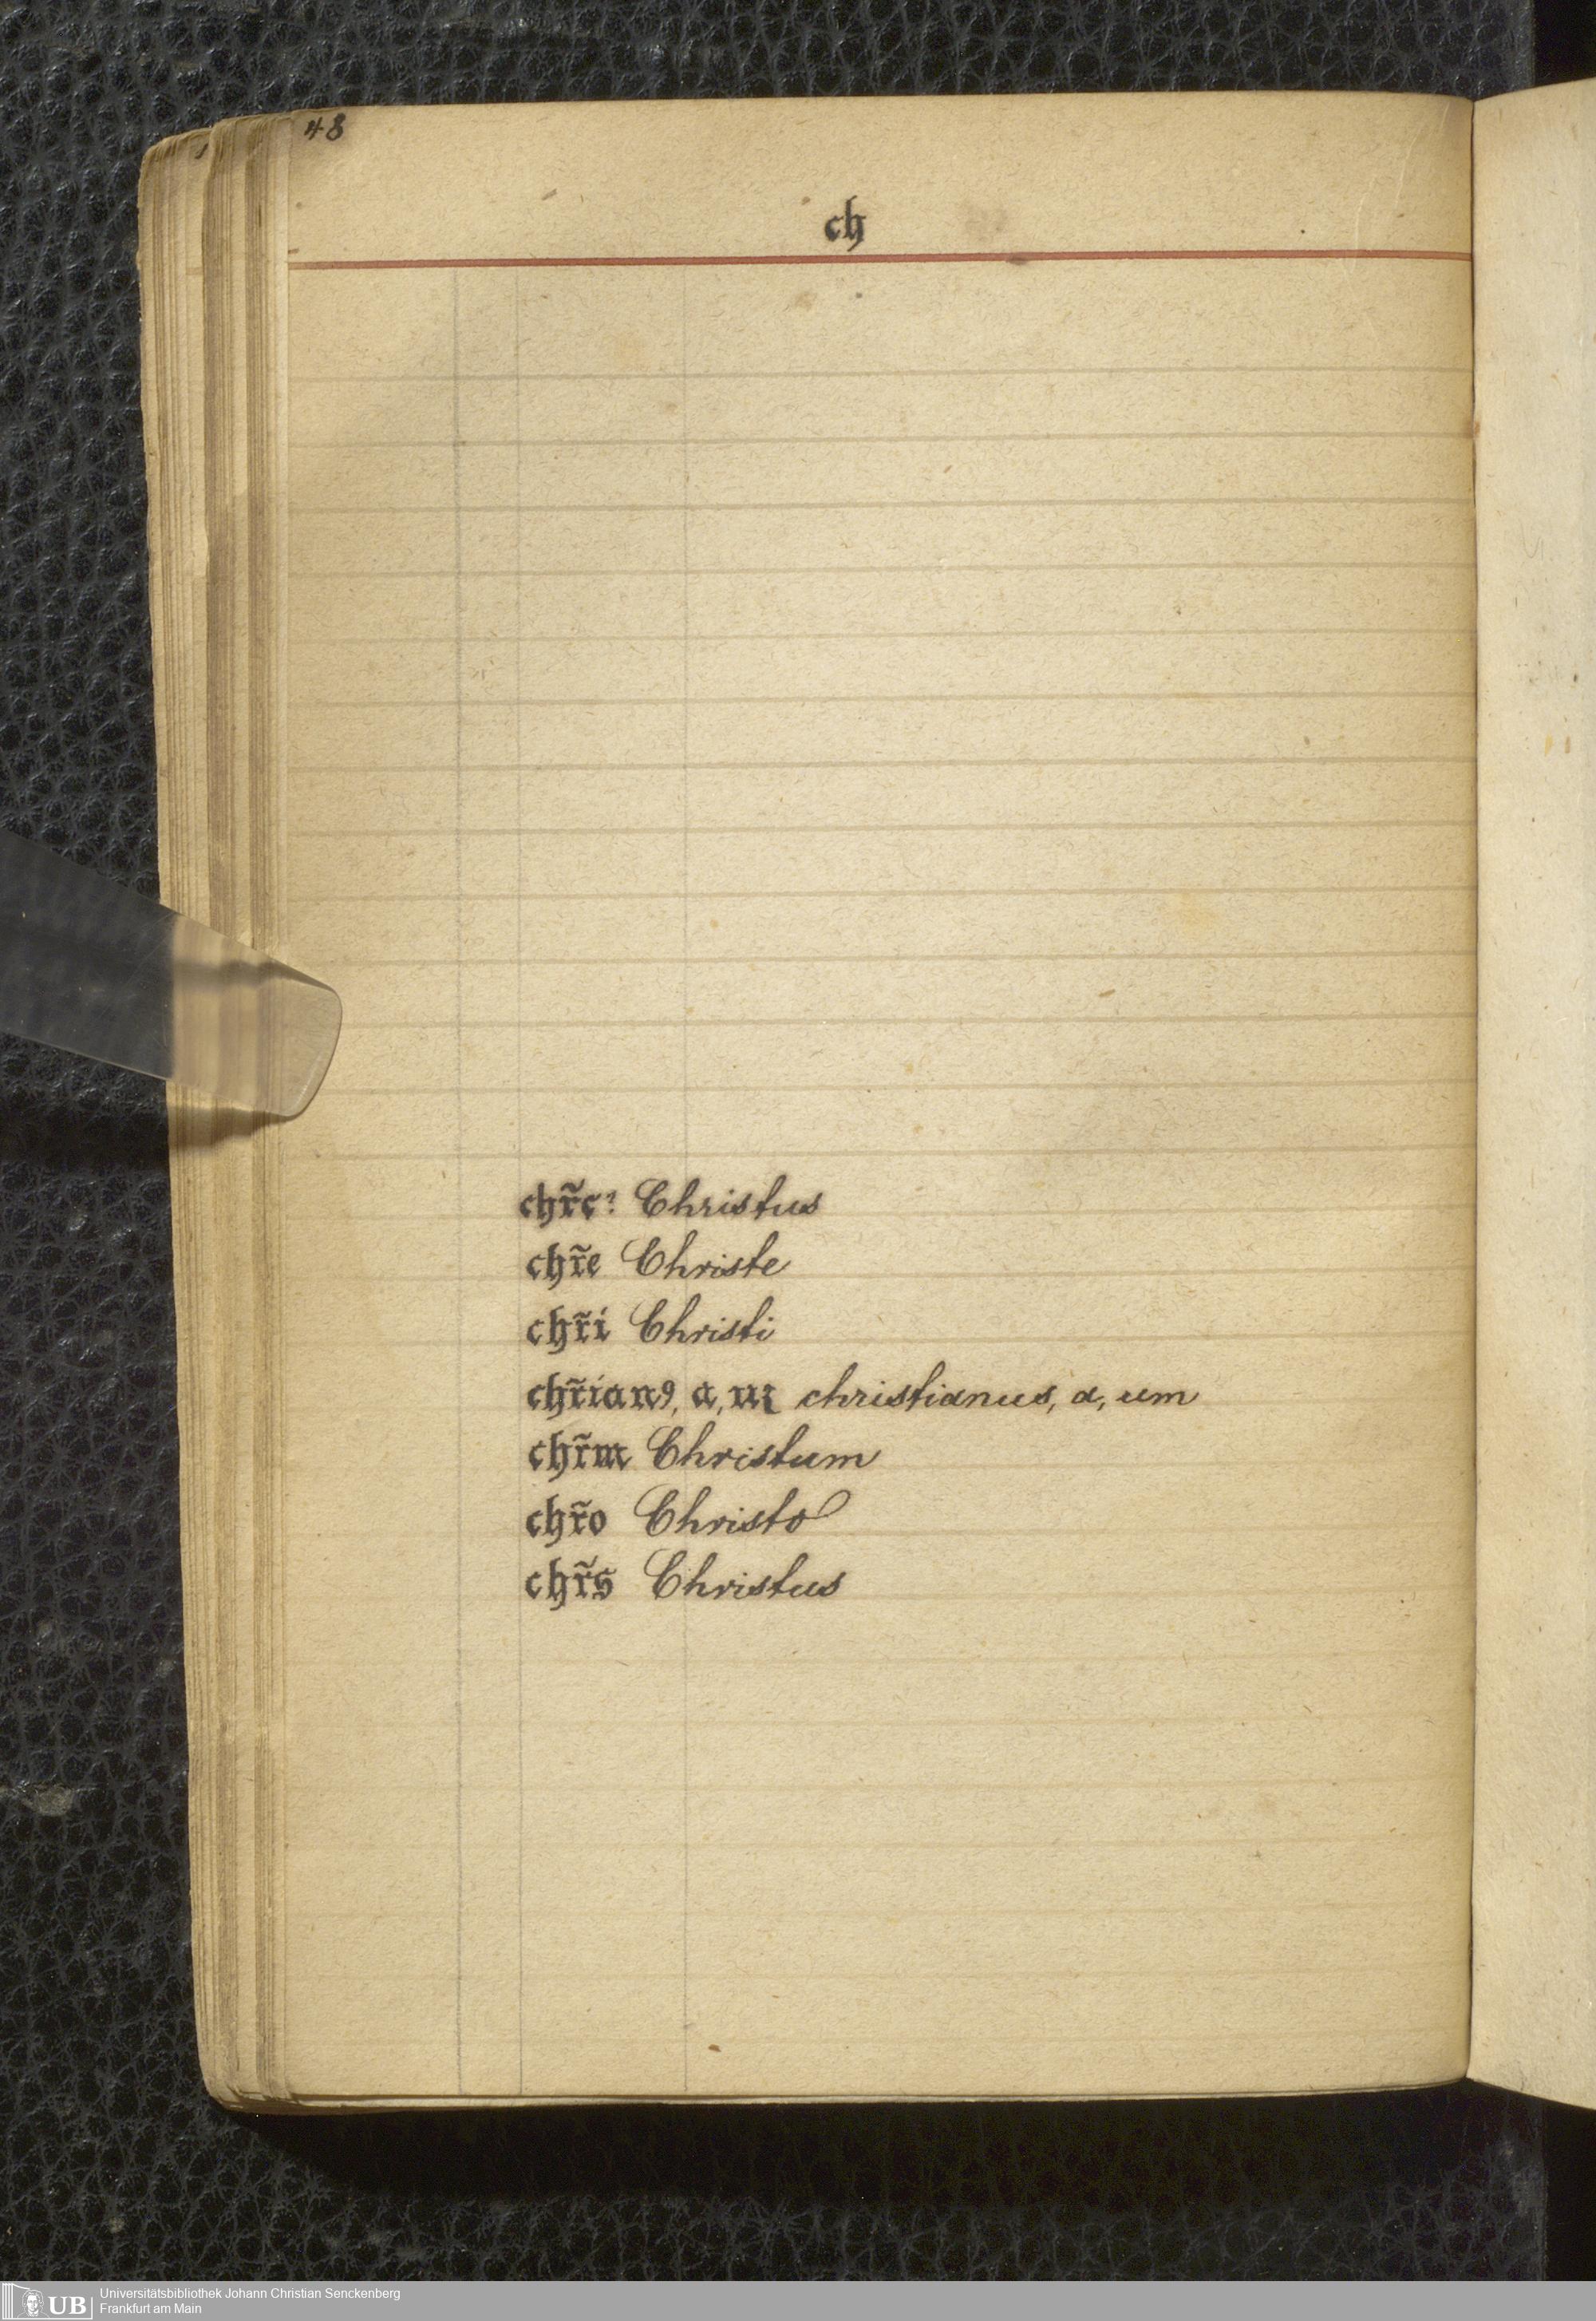 48
ch
chr̃c? Christus
chr̃e Christe
chr̃i Christi
chr̃ianꝯ, a, uꝫ christianus, a, um
chr̃m Christum
chr̃o Christo
chr̃s Christus
UB Universitätsbibliothek Johann Christian Senckenberg
Frankfurt am Main